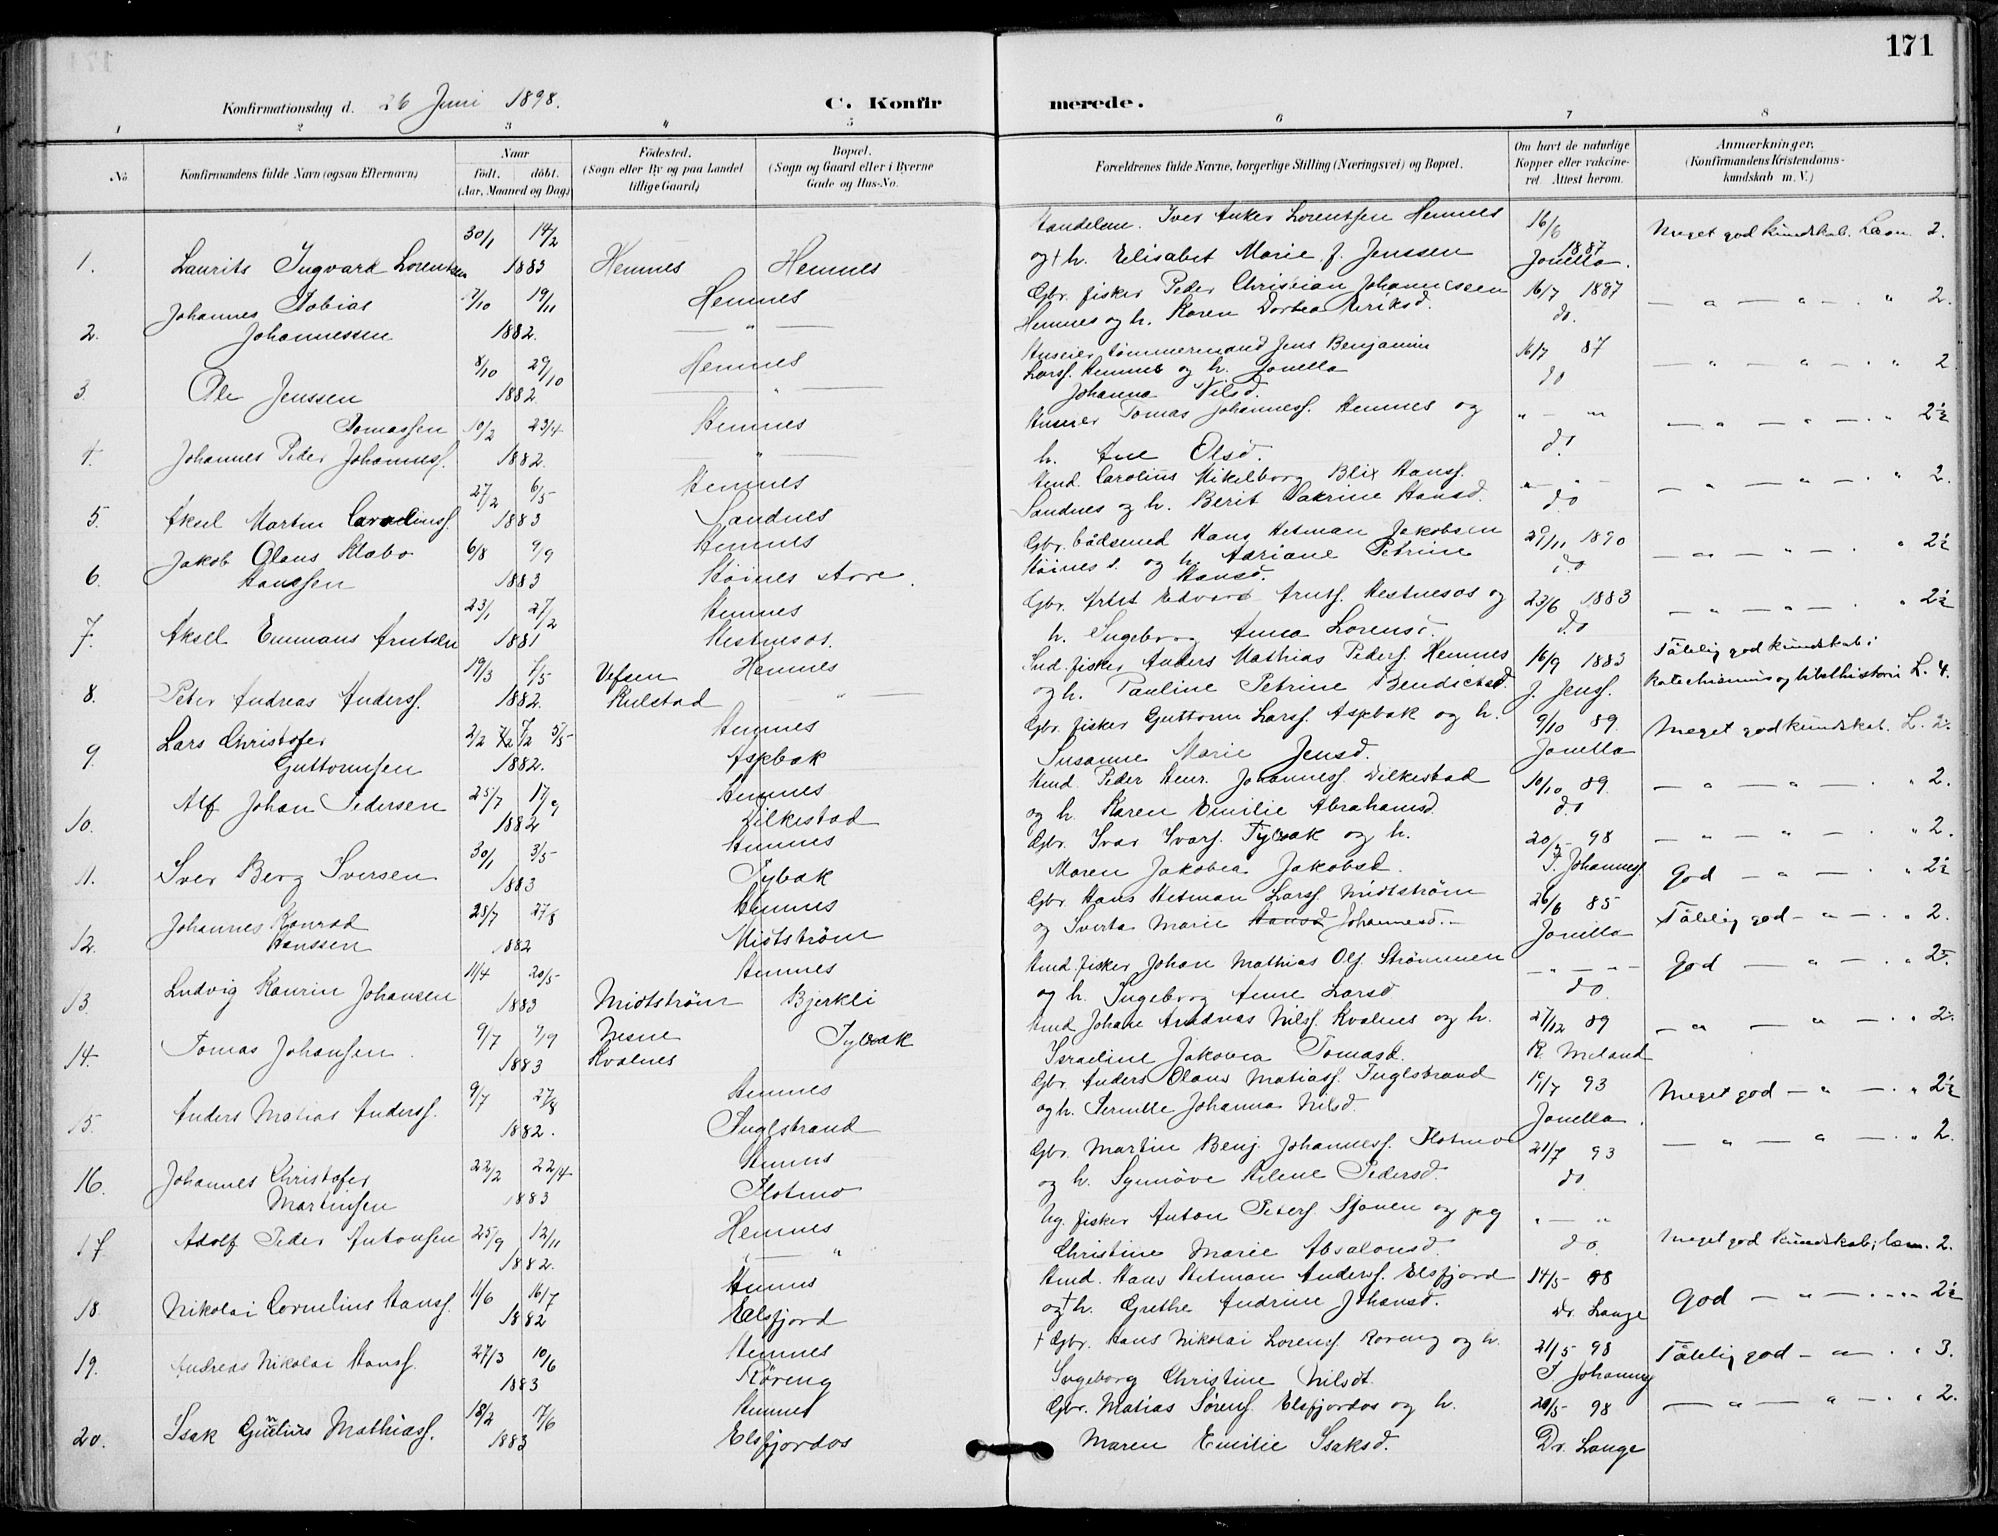 171
Konfirmationsdag d. 26 Juni 1898.
C. Konfirmerede.
1 2 3 4 5 6 7 8
No.
Konfirmandens fulde Navn (ogsaa Efternavn)
Naar
født. døbt.
(Aar, Maaned og Dag)
Fødested.
(Sogn eller By og paa Landet
tillige Gaard)
Bopæl.
(Sogn og Gaard eller i Byerne
Gade og Hus-No.
Forældrenes fulde Navne, borgerlige Stilling (Næringsvei) og Bopæl.
Om havt de naturlige
Kopper eller vakcine-
ret. Attest herom.
Anmærkninger.
(Konfirmandens Kristendoms-
kundskab m. V.)
1. Laurits Ingvard Lorentsen
30/1 14/2
1883
Hemnes Hemnes
Iver Anker Lorentsen Hemnes
og † h. Elisabet Marie f. Jenssen
16/6 1887
Jonella.
Meget god Kundskab. Læsn. 2.
2. Johannes Tobias
Johannessen
7/10 19/11
1882.
Hemnes
— " —
Gbr. fisker Peder Christian Johannessen
Hemnes og h. Karen Dorbea Eriksd.
16/7 1887
do.
— " — " — . " 2.
3. Ole Jenssen
8/10 29/10
1882
Hemnes
— " —
Huseier tømmermand Jens Benjamin
Larss. Hemnes og h. Jonella
Johanna Nilsd.
16/7 87
do
— " — " — . " 2
4. Tomassen
Johannes Peder Johanness.
10/2 23/4
1882.
Hemnes
— " —
Huseier Tomas Johanness. Hemnes og
h. Ane Olsd.
" — "
do.
— " — " — . " 2½
5. Aksel Martin Carolinss.
27/2 6/5
1883
Hemnes
Sandnes
Hmd. Carolius Mikelborg Blix Hanss.
Sandnes og h. Berit Katrine Hansd.
" — " —
do
— " — " — . " 2.
6. Jakob Olaus Klabo
Hanssen
6/8 9/9
1883
Hemnes
Høines store.
Gbr. bådsmd Hans Hetman Jakobsen
Høines s. og h. Adriane Petrine
Hansd.
29/11 1890
do
— " — " — . " 2½
7. Aksel Emmans Arntsen
23/1 27/2
1881
Hemnes
Hestnesos.
Gbr. Arnt Edvard Arnts. Hestnesos og
h. Ingeborg Anna Lorensd.
23/6 1883
do
— " — " — . " 2½
8. Peter Andreas Anderss.
19/3 /5
1882.
Vefsen Hemnes
Kulstad — " —
Ind. fisker Anders Mathias Peders. Hemnes
og h. Pauline Petrine Bendictsd.
16/9 1883
J. Jenss.
Tålelig god kundskab i
katechismus og bibelhistorie L. 4.
9. Lars Christofer
Guttormsen
2/2 5/5
1882.
Hemnes
Aspbak
Gbr. fisker Guttorm Larss. Aspbak og h.
Susanne Marie Jensd.
9/10 89
Jonella
Meget god kundskab. L. 2.
10. Alf Johan Pedersen
25/7 17/9
1882
Hemnes
Dilkestad
Hmd. Peder Henr. Johanness. Dilkestad
og h. Karen Emilie Abrahamsd.
10/10 89.
do
— " — " — . " 2.
11. Iver Berg Iversen
30/1 3/5
1883
Hemnes
Tybak
Gbr. Ivar Ivars. Tybak og h.
Maren Jakobea Jakobsd.
20/5 98
T. Johanness.
— " — " — . " 2.
12. Johannes Konrad
Hanssen
25/7 27/8
1882
Hemnes
Midtstrøm
Gbr. Hans Hetman Larss. Midtstrøm
og Sverta Marie Hansd Johannesd.
26/6 85
Jonella
God — " — . " 2½
13. Ludvig Kaurin Johansen
11/4 20/5
1883
Hemnes
Midtstrøm Bjerkli
Hmd. fisker Johan Mathias Ols. Strømmen
og h. Ingeborg Anne Larsd
— " — " —
do
Tålelig god — " — . " 2.
14. Tomas Johansen.
9/7 9/9
1883
Nesne
Kvalnes
Tybak
Hmd Johan Andreas Nilss. Kvalnes og h.
Israeline Jakobea Tomasd.
27/12 89
K. Meland
God — " — . " 2.
— " — " — . " 2.
15. Anders Matias Anderss.
9/7 27/8
1882.
Hemnes
Inglstrand
Gbr. Anders Olaus Matiass. Inglstrand
og h. Pernille Johanna Nilsd.
19/7 93
Jonella.
Meget god — " — . " 2½
16. Johannes Christofer
Martinsen
22/2 22/4
1883
Hemnes
Flotmo
Gbr. Martin Benj. Johanness. Flotmo
og h. Synnøve Helene Pedersd.
21/7 93
do
— " — " — . " 2.
17 Adolf Peder Antonsen
25/9 12/11
1882.
Hemnes
" — "
Ug. fisker Anton Peters. Sjonen og pg
Christine Marie Absalonsd.
" — "
do.
Meget god kundskab; læsn. 2.
18. Nikolai Cornelius Hanss.
1/6 16/7
1882
Hemnes
Elsfjord
Hmd. Hans Hetman Anderss. Elsfjord
og † h. Grethe Andrine Johansd.
14/5 98
Dr. Lange
God — " — . " 2½
19. Andreas Nikolai Hanss.
27/3 10/6
1883
Hemnes
Røreng
† Gbr. Hans Nikolai Lorens. Røreng og h.
Ingeborg Christine Nilsdt.
21/5 98
T Johanness
Tålelig god — " — . " 3.
20. Isak Gunelius Mathiass.
18/2 7/6
1883
Hemnes
Elsfjordos
Gbr. Matias Sørens. Elsfjordos og h.
Maren Emilie Isaksd.
20/5 98
Dr. Lange
— " — " — . " 2.